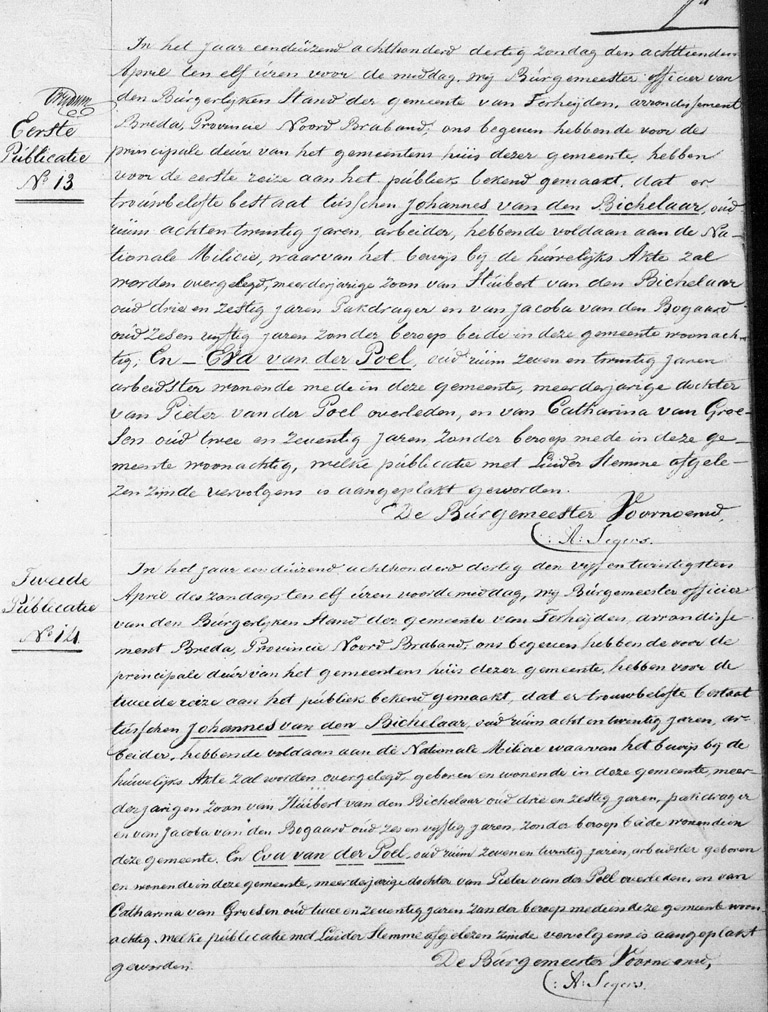 In het jaar eendúizend achthonderd dertig zondag den achttienden
April ten elf úren voor de middag, wij Búrgemeester officier van
den Búrgerlijken Stand der gemeente van Terheijden, arrondissement
Breda, Provincie Noord Braband, ons begeven hebbende voor de
principale deúr van het gemeentens húis dezer gemeente, hebben
voor de eerste reize aan het públiek bekend gemaakt, dat er
trouwbelofte bestaat tússchen Johannes van den Bichelaar, oúd
rúim achten twintig jaren, arbeider, hebbende voldaan aan de Na-
tionale Milicie, waarvan het bewijs bij de húwelijks Akte zal
worden overgelegd, meerderjarige zoon van Húibert van den Bichelaar
oúd drie en zestig jaren Pakdrager en van Jacoba van den Bogaard
oúd zes en vijftig jaren zonder beroep beide in deze gemeente woonach-
tig; En – Eva van der Poel, oud rúim zeven en twintig jaren
arbeidster wonende mede in deze gemeente, meerderjarige dochter
van Pieter van der Poel overleden, en van Catharina van Groe-
sen oud twee en zeventig jaren zonder beroep mede in deze ge-
meente woonachtig, welke públicatie met Lúider Stemme afgele-
zen zijnde vervolgens is aangeplakt geworden.
De Búrgemeester Voornoemd,
(: A: Segers.
Eerste
Públicatie
No 13
In het jaar eendúizend achthonderd dertig den vijf en twintigsten
April des zondags ten elf úren voor de middag, wij Búrgemeester officier
van den Búrgerlijken Stand der gemeente van Terheijden, arrondisse-
ment Breda, Provincie Noord Braband, ons begeven hebbende voor de
principale deúr van het gemeentens húis dezer gemeente, hebben voor de
tweede reize aan het públiek bekend gemaakt, dat er trouwbelofte bestaat
tússchen Johannes van den Bichelaar, oúd rúim acht en twintig jaren, ar-
beider, hebbende voldaan aan de Nationale Milicie waarvan het bewijs bij de
húwelijks Akte zal worden overgelegd, geboren en wonende in deze gemeente, meer-
derjarigen zoon van Húibert van den Bichelaar oud drie en zestig jaren, pakdrager
en van Jacoba van den Bogaard oúd zes en vijftig jaren, zonder beroep beide wonende in
deze gemeente. En Eva van der Poel, oud rúim zeven en twintig jaren, arbeidster geboren
en wonende in deze gemeente, meerderjarige dochter van Pieter van der Poel overleden, en van
Catharina van Groesen oúd twee en zeventig jaren zonder beroep mede in deze gemeente woon-
achtig, welke públicatie met Lúider Stemme afgelezen zijnde vervolgens is aangeplakt
geworden.
De Búrgemeester Voornoemd,
(: A: Segers.
Tweede
Públicatie
No 14